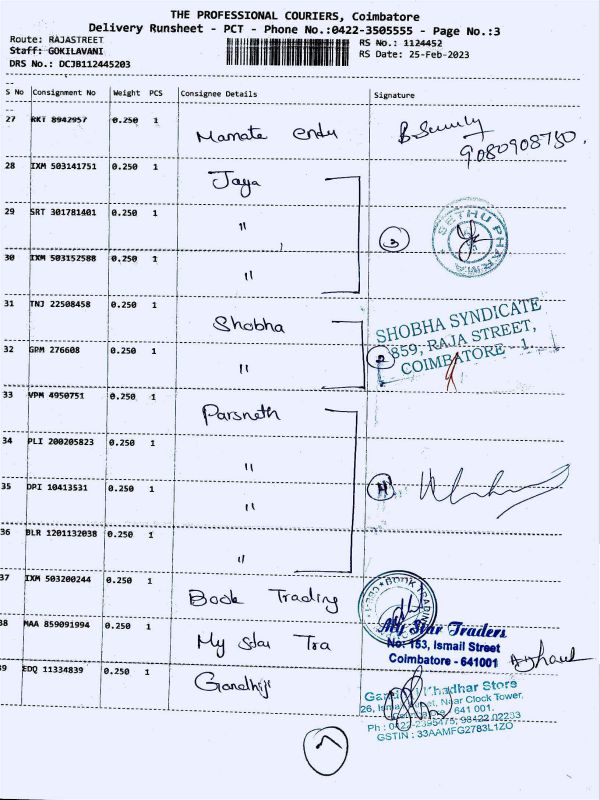 THE PROFESSIONAL COURIERS, Coimbatore
Delivery Runsheet - PCT - Phone No.:0422-3505555 - Page No.:3
Route: RAJASTREET
Staff: GOKILAVANI
DRS No.: DCJB112445203
RS No.: 1124452
RS Date: 25-Feb-2023
S No Consignment No Weight PCS Consignee Details Signature
27 RKT 8942957 0.250 1 Mamate endu
9080908750.
28 IXM 503141751 0.250 1 Jaya
29 SRT 301781401 0.250 1 "
3
SETHU PHARMA
30 IXM 503152588 0.250 1 "
31 TNJ 22508458 0.250 1 Shobha
SHOBHA SYNDICATE
859, RAJA STREET,
COIMBATORE - 1.
32 GPM 276608 0.250 1 "
2
33 VPM 4950751 0.250 1 Parsneth
34 PLI 200205823 0.250 1 "
35 DPI 10413531 0.250 1 "
4
36 BLR 1201132038 0.250 1 "
37 IXM 503200244 0.250 1 Book Trading
BOOK TRADING
38 MAA 859091994 0.250 1 My star Tra
My Star Traders
No: 153, Ismail Street
Coimbatore - 641001
39 EDQ 11334839 0.250 1 Gandhiji
Khadhar Store
Near Clock Tower,
641 001.
Ph : 0422-2395475, 98422 02233
GSTIN : 33AAMFG2783L1ZO